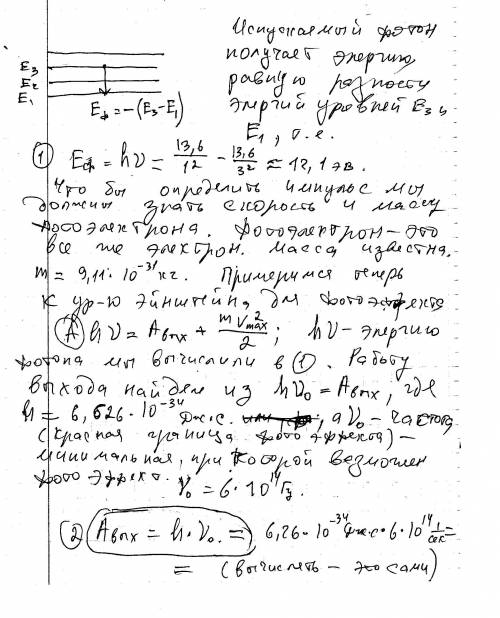 Испускаемый фотон
получает энергию
равную разности
энергий уровней E₃ и
E₁, т.е.
E₃
E₂
E₁
Eф = -(E₃-E₁)
① Eф = hν = 13,6/1² - 13,6/3² ≈ 12,1 эв.
Что бы определить импульс мы
должны знать скорость и массу
фотоэлектрона. Фотоэлектрон - это
все же электрон. Масса известна.
m = 9,11·10⁻³¹ кг. Примеримся теперь
к ур-ю Эйнштейна для фотоэффекта
Ⓐ hν = Aвых + mv²max/2; hν - энергию
фотона мы вычислили в ①. Работу
выхода найдем из hν₀ = Aвых, где
h = 6,626·10⁻³⁴ Дж·с. , а ν₀ - частота
(красная граница фотоэффекта) -
минимальная, при которой возможен
фотоэффект. ν₀ = 6·10¹⁴ Гц.
② Aвых = h·ν₀. = 6,26·10⁻³⁴ Дж·с·6·10¹⁴ 1/сек =
= (вычислять - это сами)